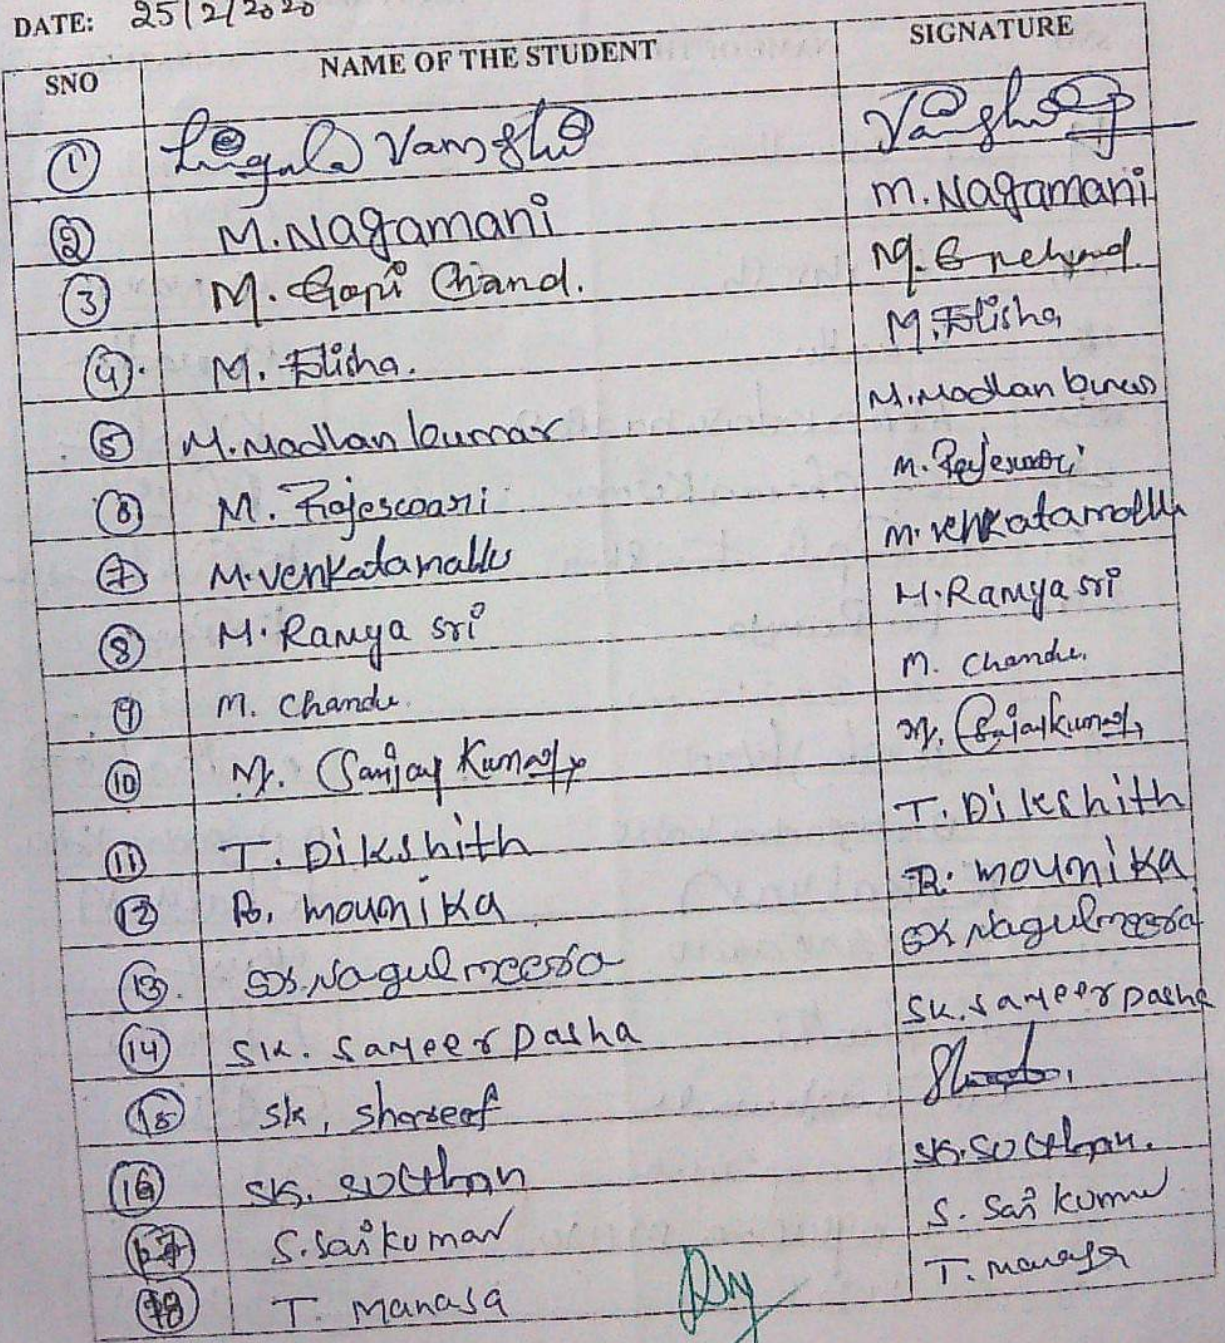 DATE: 25/2/2020
SNO NAME OF THE STUDENT SIGNATURE
1 Lingala Vamshi Vamshi
2 M. Nagamani M. Nagamani
3 M. Gopi Chand. M. Gopichand.
4. M. Elisha. M. Elisha
5 M. Madhan kumar M. Madhan kumar
6 M. Rajeswari M. Rajeswari
7 M. Venkatamallu M. Venkatamallu
8 M. Ramya sri M. Ramya sri
9 M. Chandu. M. Chandu.
10 M. Sanjay Kumar M. Sanjaykumar
11 T. Dikshith T. Dikshith
12 B. mounika B. mounika
13. SK. Nagulmeera SK Nagulmeera
14 SK. Sameer Pasha SK. Sameer Pasha
15 SK, Shareef
16 SK. Sulthan SK. Sulthan.
17 S. Sai kumar S. Sai kumar
18 T. Manasa T. manasa